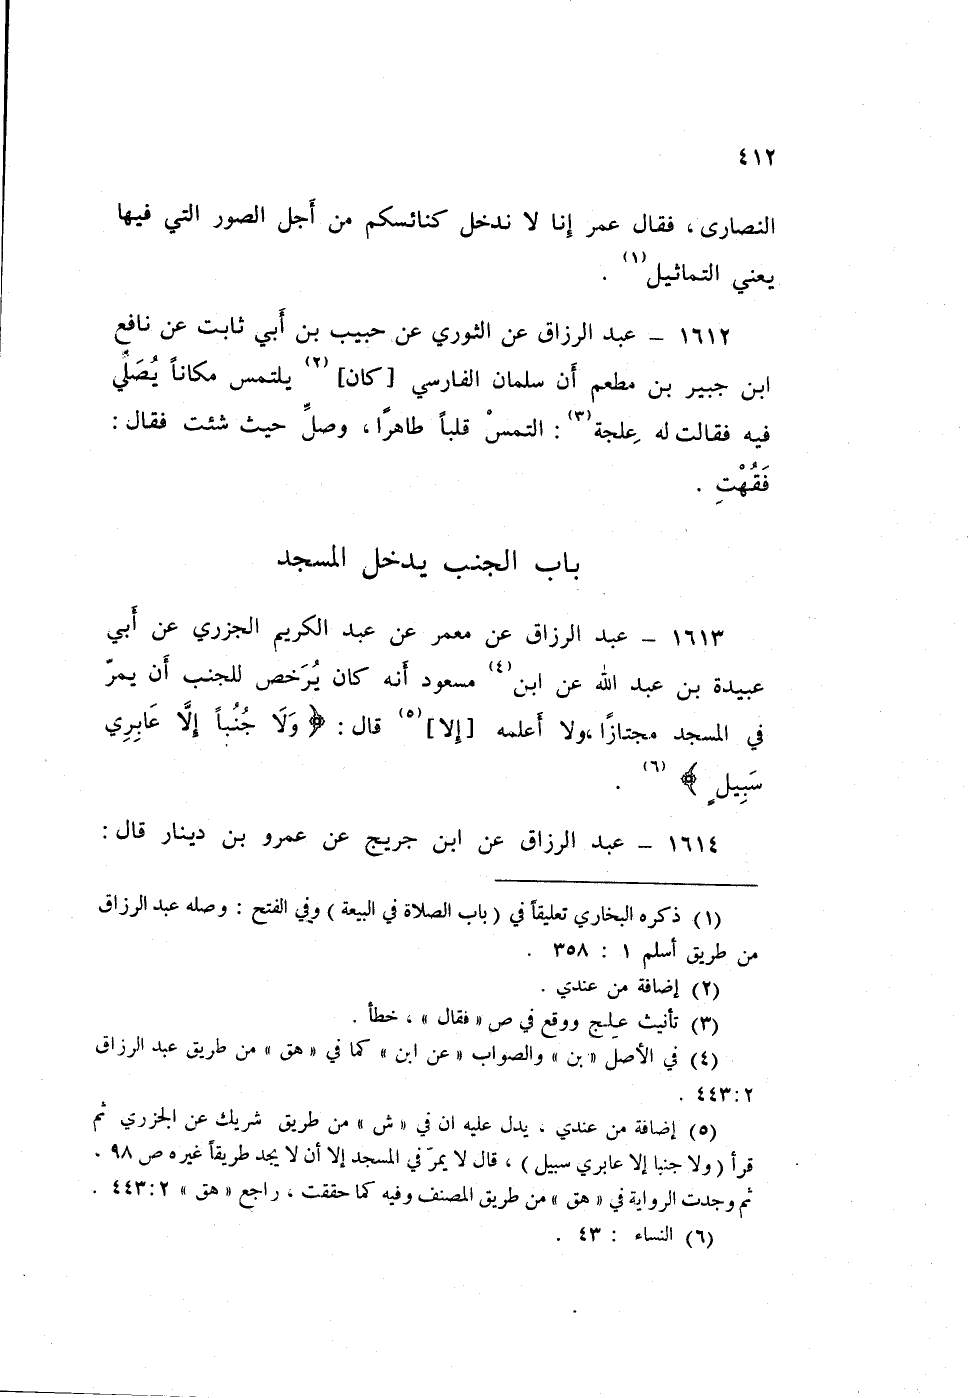 ٤١٢
النصارى، فقال عمر إنا لا ندخل كنائسكم من أَجل الصور التي فيها
يعني التماثيل(١) .
١٦١٢ – عبد الرزاق عن الثوري عن حبيب بن أَبي ثابت عن نافع
ابن جبير بن مطعم أَن سلمان الفارسي [كان](٢) يلتمس مكاناً يُصَلِّي
فيه فقالت له عِلجة(٣) : التمسْ قلباً طاهرًا، وصلِّ حيث شئت فقال :
فَقُهْتِ .
باب الجنب يدخل المسجد
١٦١٣ – عبد الرزاق عن معمر عن عبد الكريم الجزري عن أَبي
عبيدة بن عبد الله عن ابن(٤) مسعود أنه كان يُرَخص للجنب أن يمرّ
في المسجد مجتازًا، ولا أَعلمه [إلا](٥) قال : ﴿ وَلَا جُنُباً إِلَّا عَابِرِي
سَبِيلٍ ﴾(٦) .
١٦١٤ – عبد الرزاق عن ابن جريج عن عمرو بن دينار قال :
(١) ذكره البخاري تعليقاً في ( باب الصلاة في البيعة ) وفي الفتح : وصله عبد الرزاق
من طريق أسلم ١ : ٣٥٨ .
(٢) إضافة من عندي .
(٣) تأنيث علج ووقع في ص « فقال » ، خطأ .
(٤) في الأصل « بن » والصواب « عن ابن » كما في « هق » من طريق عبد الرزاق
٢:٤٤٣ .
(٥) إضافة من عندي ، يدل عليه ان في « ش » من طريق شريك عن الجزري ثم
قرأ ( ولا جنبا إلا عابري سبيل ) ، قال لا يمرّ في المسجد إلا أن لا يجد طريقاً غيره ص ٩٨ .
ثم وجدت الرواية في « هق » من طريق المصنف وفيه كما حققت ، راجع « هق » ٢:٤٤٣ .
(٦) النساء : ٤٣ .